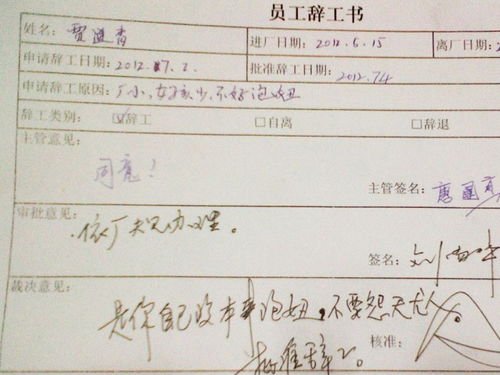 员工辞工书
姓名: 贾 青 进厂日期: 2012.5.15 离厂日
申请辞工日期: 2012. 7. 2. 批准辞工日期: 2012.7.4
申请辞工原因: 厂小,女孩少,不好泡妞
辞工类别: ☑辞工 □自离 □辞退
主管意见:
同意!
主管签名:
审批意见:
依厂规办理。
签名: 刘
裁决意见:
是你自己没本事泡妞,不要怨天尤人。
核准:
批准辞工。